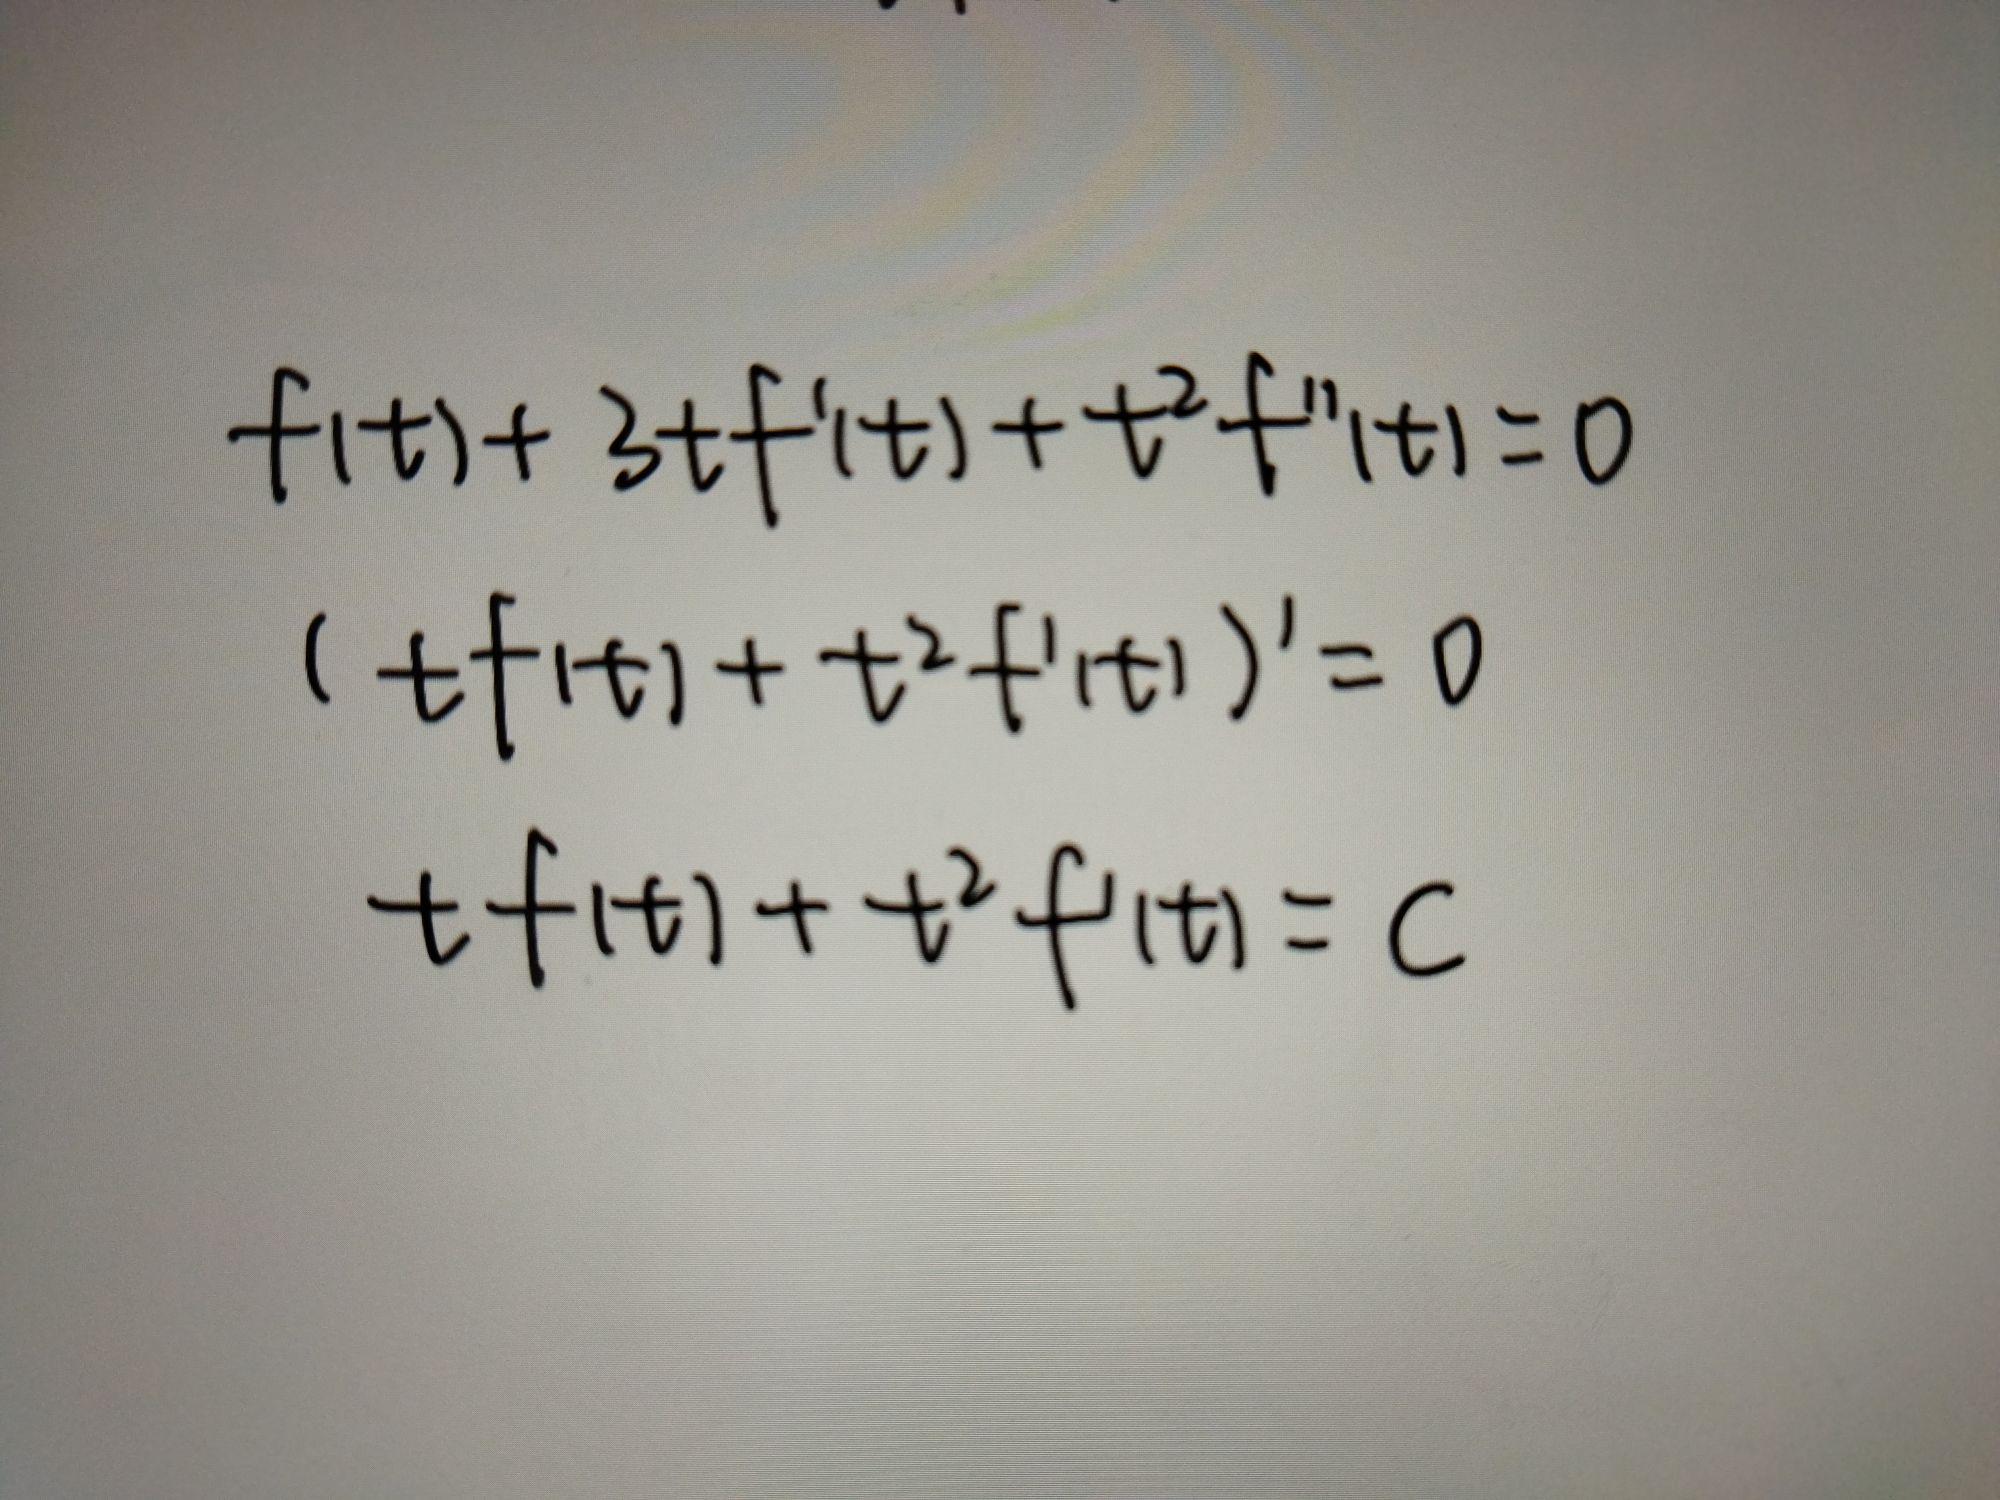 f(t)+3tf'(t)+t²f''(t)=0
(tf(t)+t²f'(t))'=0
tf(t)+t²f'(t)=C